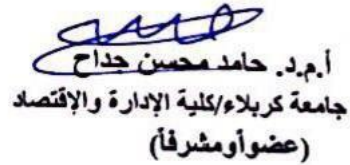 أ.م.د. حامد محسن جداح
جامعة كربلاء/كلية الإدارة والإقتصاد
(عضوأومشرفاً)